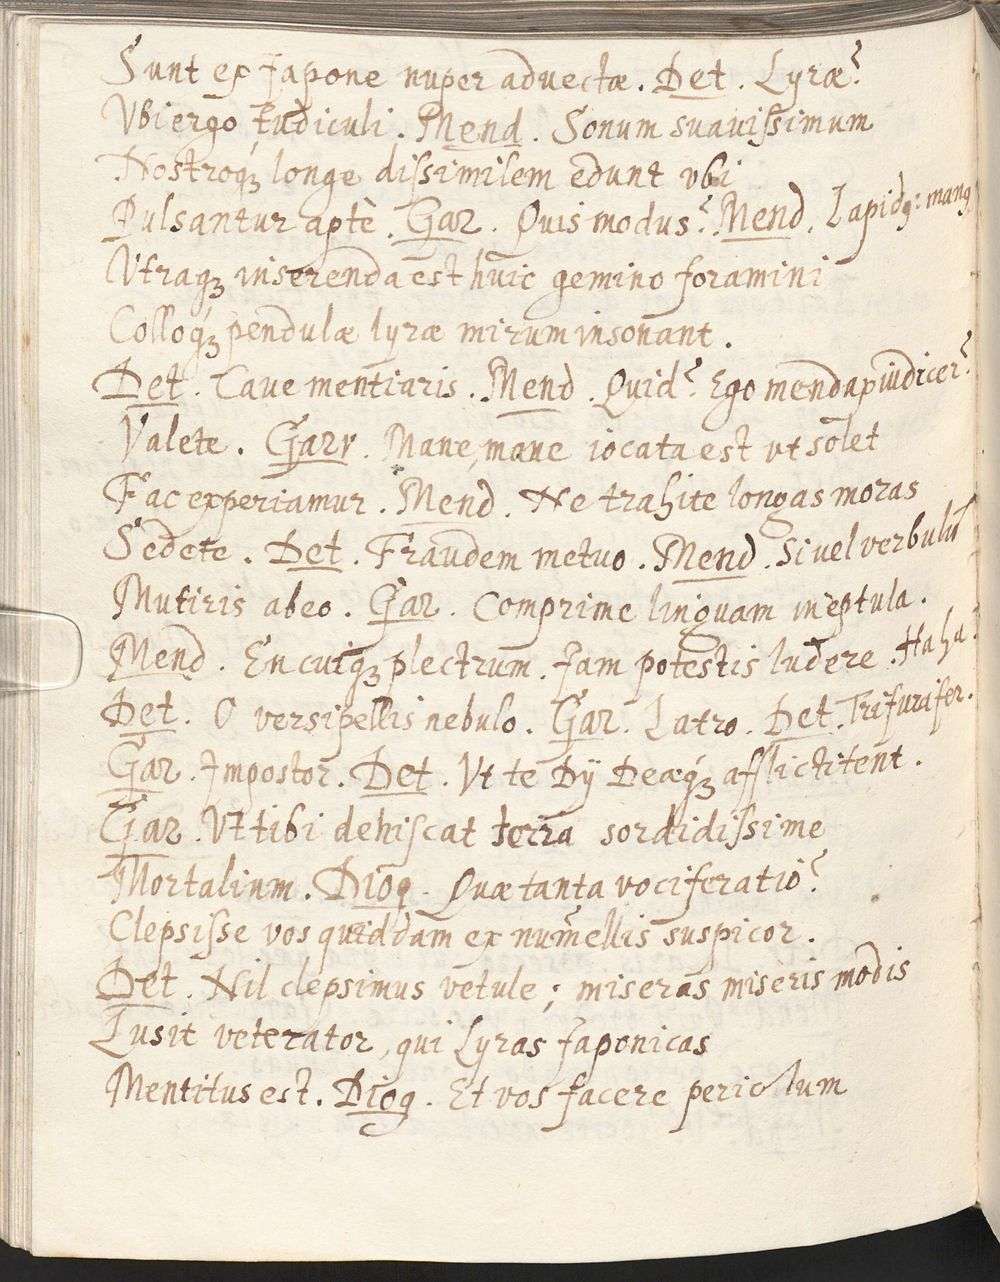 Sunt ex Japone nuper aduectæ. Det. Lyræ?
Vbi ergo tudiculi. Mend. Sonum suauissimum
Nostroq́ꝫ longe dissimilem edunt vbi
Pulsantur aptè. Gar. Quis modus? Mend. Lapidꝫ: manꝫ
Vtraqꝫ inserenda est huic gemino foramini
Colloq́ꝫ pendulæ lyræ mirum insonant.
Det. Caue mentiaris. Mend. Quid? Ego mendax iudicer?
Valete. Garr. Mane, mane iocata est vt solet
Fac experiamur. Mend. Ne trahite longas moras
Sedete. Det. Fraudem metuo. Mend. Si vel verbulū
Mutiris abeo. Gar. Comprime linguam ineptula.
Mend. En cuiqꝫ plectrum. Jam potestis ludere. Ha ha.
Det. O versipellis nebulo. Gar. Latro. Det. Trifurifer.
Gar. Impostor. Det. Vt te Dÿ Deæq́ꝫ afflictitent.
Gar. Vt tibi dehiscat terra sordidissime
Mortalium. Diog. Quæ tanta vociferatio?
Clepsisse vos quiddam ex numellis suspicor.
Det. Nil clepsimus vetule; miseras miseris modis
Lusit veterator, qui Lyras Japonicas
Mentitus est. Diog. Et vos facere periclum